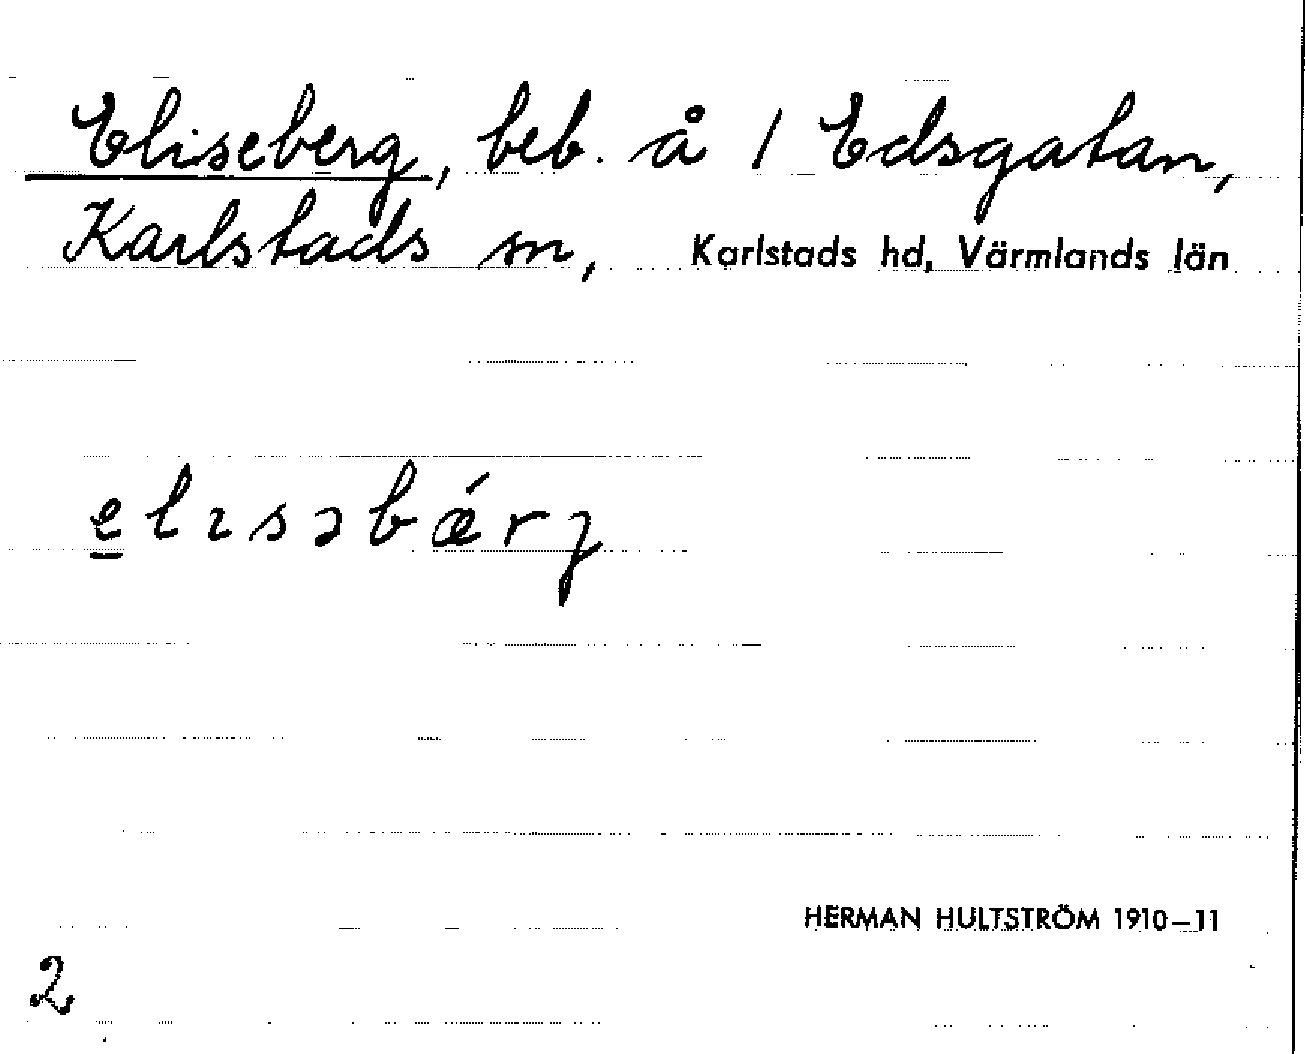 Eliseberg, beb. å 1 Edsgatan,
Karlstads sn, Karlstads hd, Värmlands län
elısəbǽrɟ
HERMAN HULTSTRÖM 1910–11
2